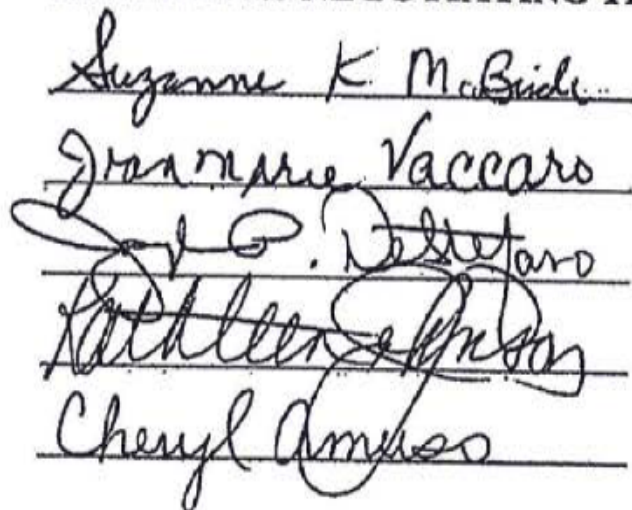 Suzanne K. McBride
Jean Marie Vaccaro
P. DeStefano
Kathleen Johnson
Cheryl Amuso